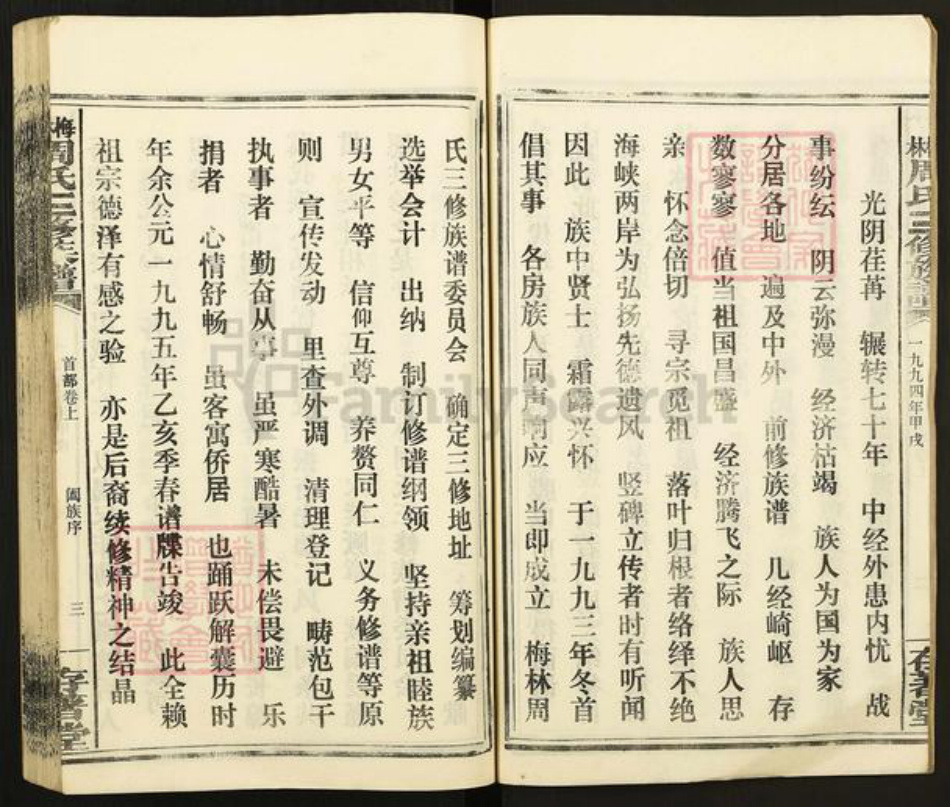 梅林周氏三修族譜
一九九四年甲戌
存著堂
光阴荏苒　辗转七十年　中经外患内忧　战
事纷纭　阴云弥漫　经济枯竭　族人为国为家
分居各地　遍及中外　前修族谱　几经崎岖　存
数寥寥　值当祖国昌盛　经济腾飞之际　族人思
亲　怀念倍切　寻宗觅祖　落叶归根者络绎不绝
海峡两岸为弘扬先德遗风　竖碑立传者时有听闻
因此　族中贤士　霜露兴怀　于一九九三年冬首
倡其事　各房族人同声响应　当即成立　梅林周
氏三修族谱委员会　确定三修地址　筹划编纂
选举会计　出纳　制订修谱纲领　坚持亲祖睦族
男女平等　信仰互尊　养赘同仁　义务修谱等原
则　宣传发动　里查外调　清理登记　畴范包干
执事者　勤奋从事　虽严寒酷暑　未偿畏避　乐
捐者　心情舒畅　虽客寓侨居　也踊跃解囊历时
年余公元一九九五年乙亥季春谱牒告竣　此全赖
祖宗德泽有感之验　亦是后裔续修精神之结晶
梅林周氏三修族譜
首部卷上
阖族序
三
存著堂
FamilySearch